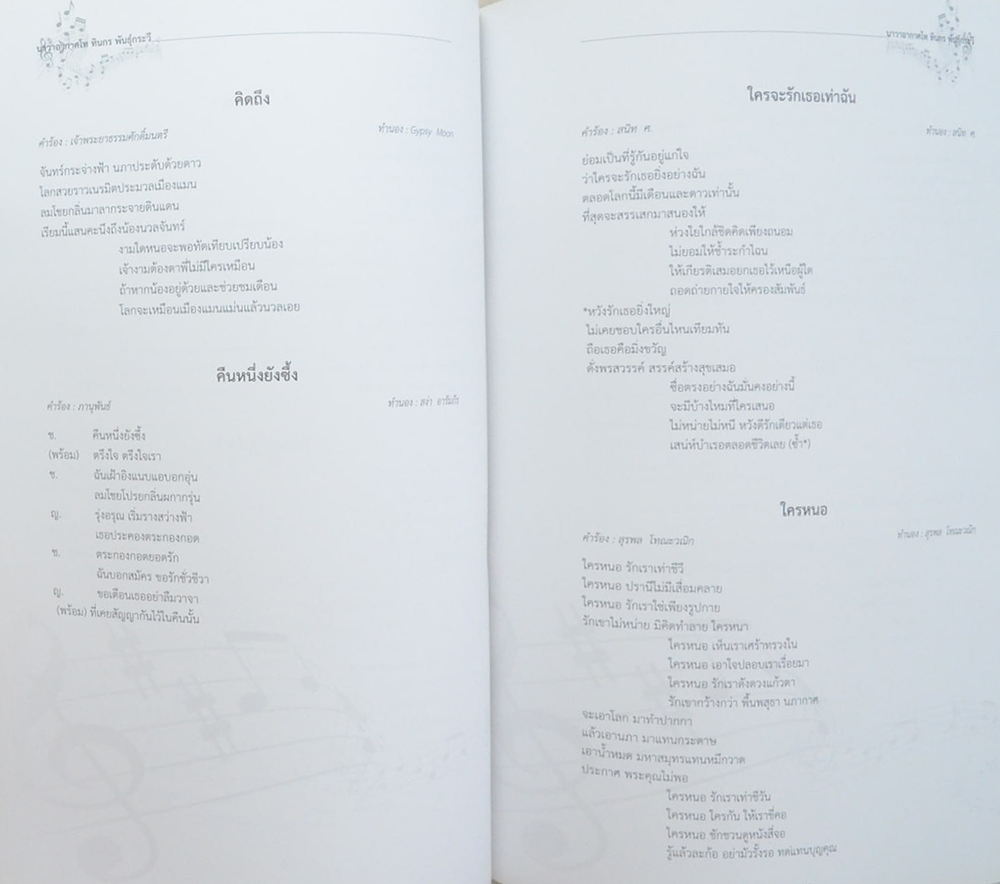 นาวาอากาศโท ทินกร พันธุ์กระวี
คิดถึง
คำร้อง : เจ้าพระยาธรรมศักดิ์มนตรี
ทำนอง : Gypsy Moon
จันทร์กระจ่างฟ้า นภาประดับด้วยดาว
โลกสวยราวเนรมิตประมวลเมืองแมน
ลมโชยกลิ่นมาลากระจายดินแดน
เรียมนี้แสนคะนึงถึงน้องนวลจันทร์
งามใดหนอจะพอทัดเทียบเปรียบน้อง
เจ้างามต้องตาพี่ไม่มีใครเหมือน
ถ้าหากน้องอยู่ด้วยและช่วยชมเดือน
โลกจะเหมือนเมืองแมนแม่นแล้วนวลเอย
คืนหนึ่งยังซึ้ง
คำร้อง : ภานุพันธ์
ทำนอง : สง่า อารัมภีร
ช. คืนหนึ่งยังซึ้ง
(พร้อม) ตรึงใจ ตรึงใจเรา
ช. ฉันเฝ้าอิงแนบแอบอกอุ่น
ลมโชยโปรยกลิ่นผกากรุ่น
ญ. รุ่งอรุณ เริ่มรางสว่างฟ้า
เธอประคองตระกองกอด
ช. ตระกองกอดยอดรัก
ฉันบอกสมัคร ขอรักชั่วชีวา
ญ. ขอเตือนเธออย่าลืมวาจา
(พร้อม) ที่เคยสัญญากันไว้ในคืนนั้น
นาวาอากาศโท ทินกร พันธุ์กระวี
ใครจะรักเธอเท่าฉัน
คำร้อง : สนิท ศ.
ทำนอง : สนิท ศ.
ย่อมเป็นที่รู้กันอยู่แก่ใจ
ว่าใครจะรักเธอยิ่งอย่างฉัน
ตลอดโลกนี้มีเดือนและดาวเท่านั้น
ที่สุดจะสรรเสกมาสนองให้
ห่วงใยใกล้ชิดคิดเพียงถนอม
ไม่ยอมให้ช้ำระกำไฉน
ให้เกียรติเสมอยกเธอไว้เหนือผู้ใด
ถอดถ่ายกายใจให้ครองสัมพันธ์
*หวังรักเธอยิ่งใหญ่
ไม่เคยชอบใครอื่นไหนเทียมทัน
ถือเธอคือมิ่งขวัญ
ดั่งพรสวรรค์ สรรค์สร้างสุขเสมอ
ซื่อตรงอย่างฉันมั่นคงอย่างนี้
จะมีบ้างไหมที่ใครเสนอ
ไม่หน่ายไม่หนี หวังดีรักเดียวแต่เธอ
เสน่ห์บำเรอตลอดชีวิตเลย (ซ้ำ*)
ใครหนอ
คำร้อง : สุรพล โทณะวณิก
ทำนอง : สุรพล โทณะวณิก
ใครหนอ รักเราเท่าชีวี
ใครหนอ ปรานีไม่มีเสื่อมคลาย
ใครหนอ รักเราใช่เพียงรูปกาย
รักเขาไม่หน่าย มิคิดทำลาย ใครหนา
ใครหนอ เห็นเราเศร้าทรวงใน
ใครหนอ เอาใจปลอบเราเรื่อยมา
ใครหนอ รักเราดังดวงแก้วตา
รักเขากว้างกว่า พื้นพสุธา นภากาศ
จะเอาโลก มาทำปากกา
แล้วเอานภา มาแทนกระดาษ
เอาน้ำหมด มหาสมุทรแทนหมึกวาด
ประกาศ พระคุณไม่พอ
ใครหนอ รักเราเท่าชีวัน
ใครหนอ ใครกัน ให้เราขี่คอ
ใครหนอ ชักชวนดูหนังสี่จอ
รู้แล้วละก้อ อย่ามัวรั้งรอ ทดแทนบุญคุณ